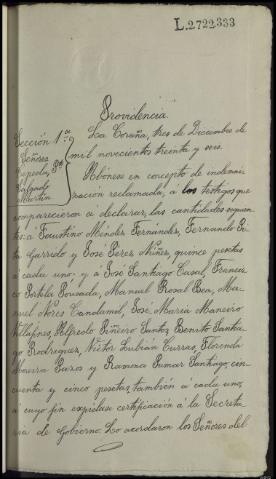 L.2722333
Providencia.
Sección 1.ª
Señores
Salgado
Martín
La Coruña, tres de Diciembre de
mil novecientos treinta y seis.
Abónese en concepto de indemni-
zación reclamada, á los testigos que
comparecieron á declarar, las cantidades siguien-
tes: á Faustino Méndez Fernández, Fernando
Garrido y José Pérez Núñez, quince pesetas
á cada uno y á José Santiago Casal, Francis-
co Portela Pousada, Manuel Rosal Rey, Ma-
nuel Candamel, José María Maneiro
Villafines, Alfredo Piñeiro Santos, Benito Santia-
go Rodríguez, Víctor Lubián Curras, Florencio
Pazos y Ramona Pumar Santiago, cin-
cuenta y cinco pesetas, también á cada uno,
á cuyo fin expídase certificación á la Secreta-
ría de Gobierno. Lo acordaron los Señores del